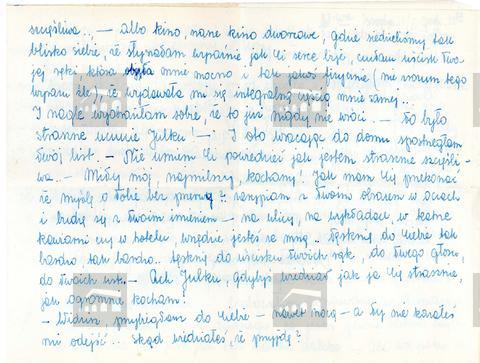 szczęśliwa..., — albo kino, nasze kino dworcowe, gdzie siedzieliśmy tak
blisko siebie, że słyszałam wyraźnie jak Ci serce bije, czułam uścisk Two
jej ręki która była mnie mocno i tak jakoś (nie znam tego
wyrazu źle), że wydawała mi się integralną częścią mnie samej...
I nagle wspomniałam sobie, że to już nigdy nie wróci. — To było
straszne uczucie Julku! — I oto wracając do domu spostrzegłam
Twój list. — Nie umiem Ci powiedzieć jak jestem strasznie szczęśli-
wa.. — Miły mój, najmilszy, kochany! Jak mam Cię przekonać
że myślę o Tobie bez przerwy? zasypiam z Twoim obrazem w oczach
i budzę się z Twoim imieniem — na ulicy, na wykładach, w
kawiarni czy w hotelu, wszędzie jesteś ze mną.. Tęsknię do Ciebie tak
bardzo, tak bardzo.. Tęsknię do uścisku Twoich rąk, do Twego głosu,
do Twoich ust. — Ach Julku, gdybyś wiedział jak ja Cię strasznie,
jak ogromnie kocham!
— Widzisz przybiegłam do Ciebie — nawet nocą — a Ty nie kazałeś
mi odejść... Skąd wiedziałeś, że przyjdę?